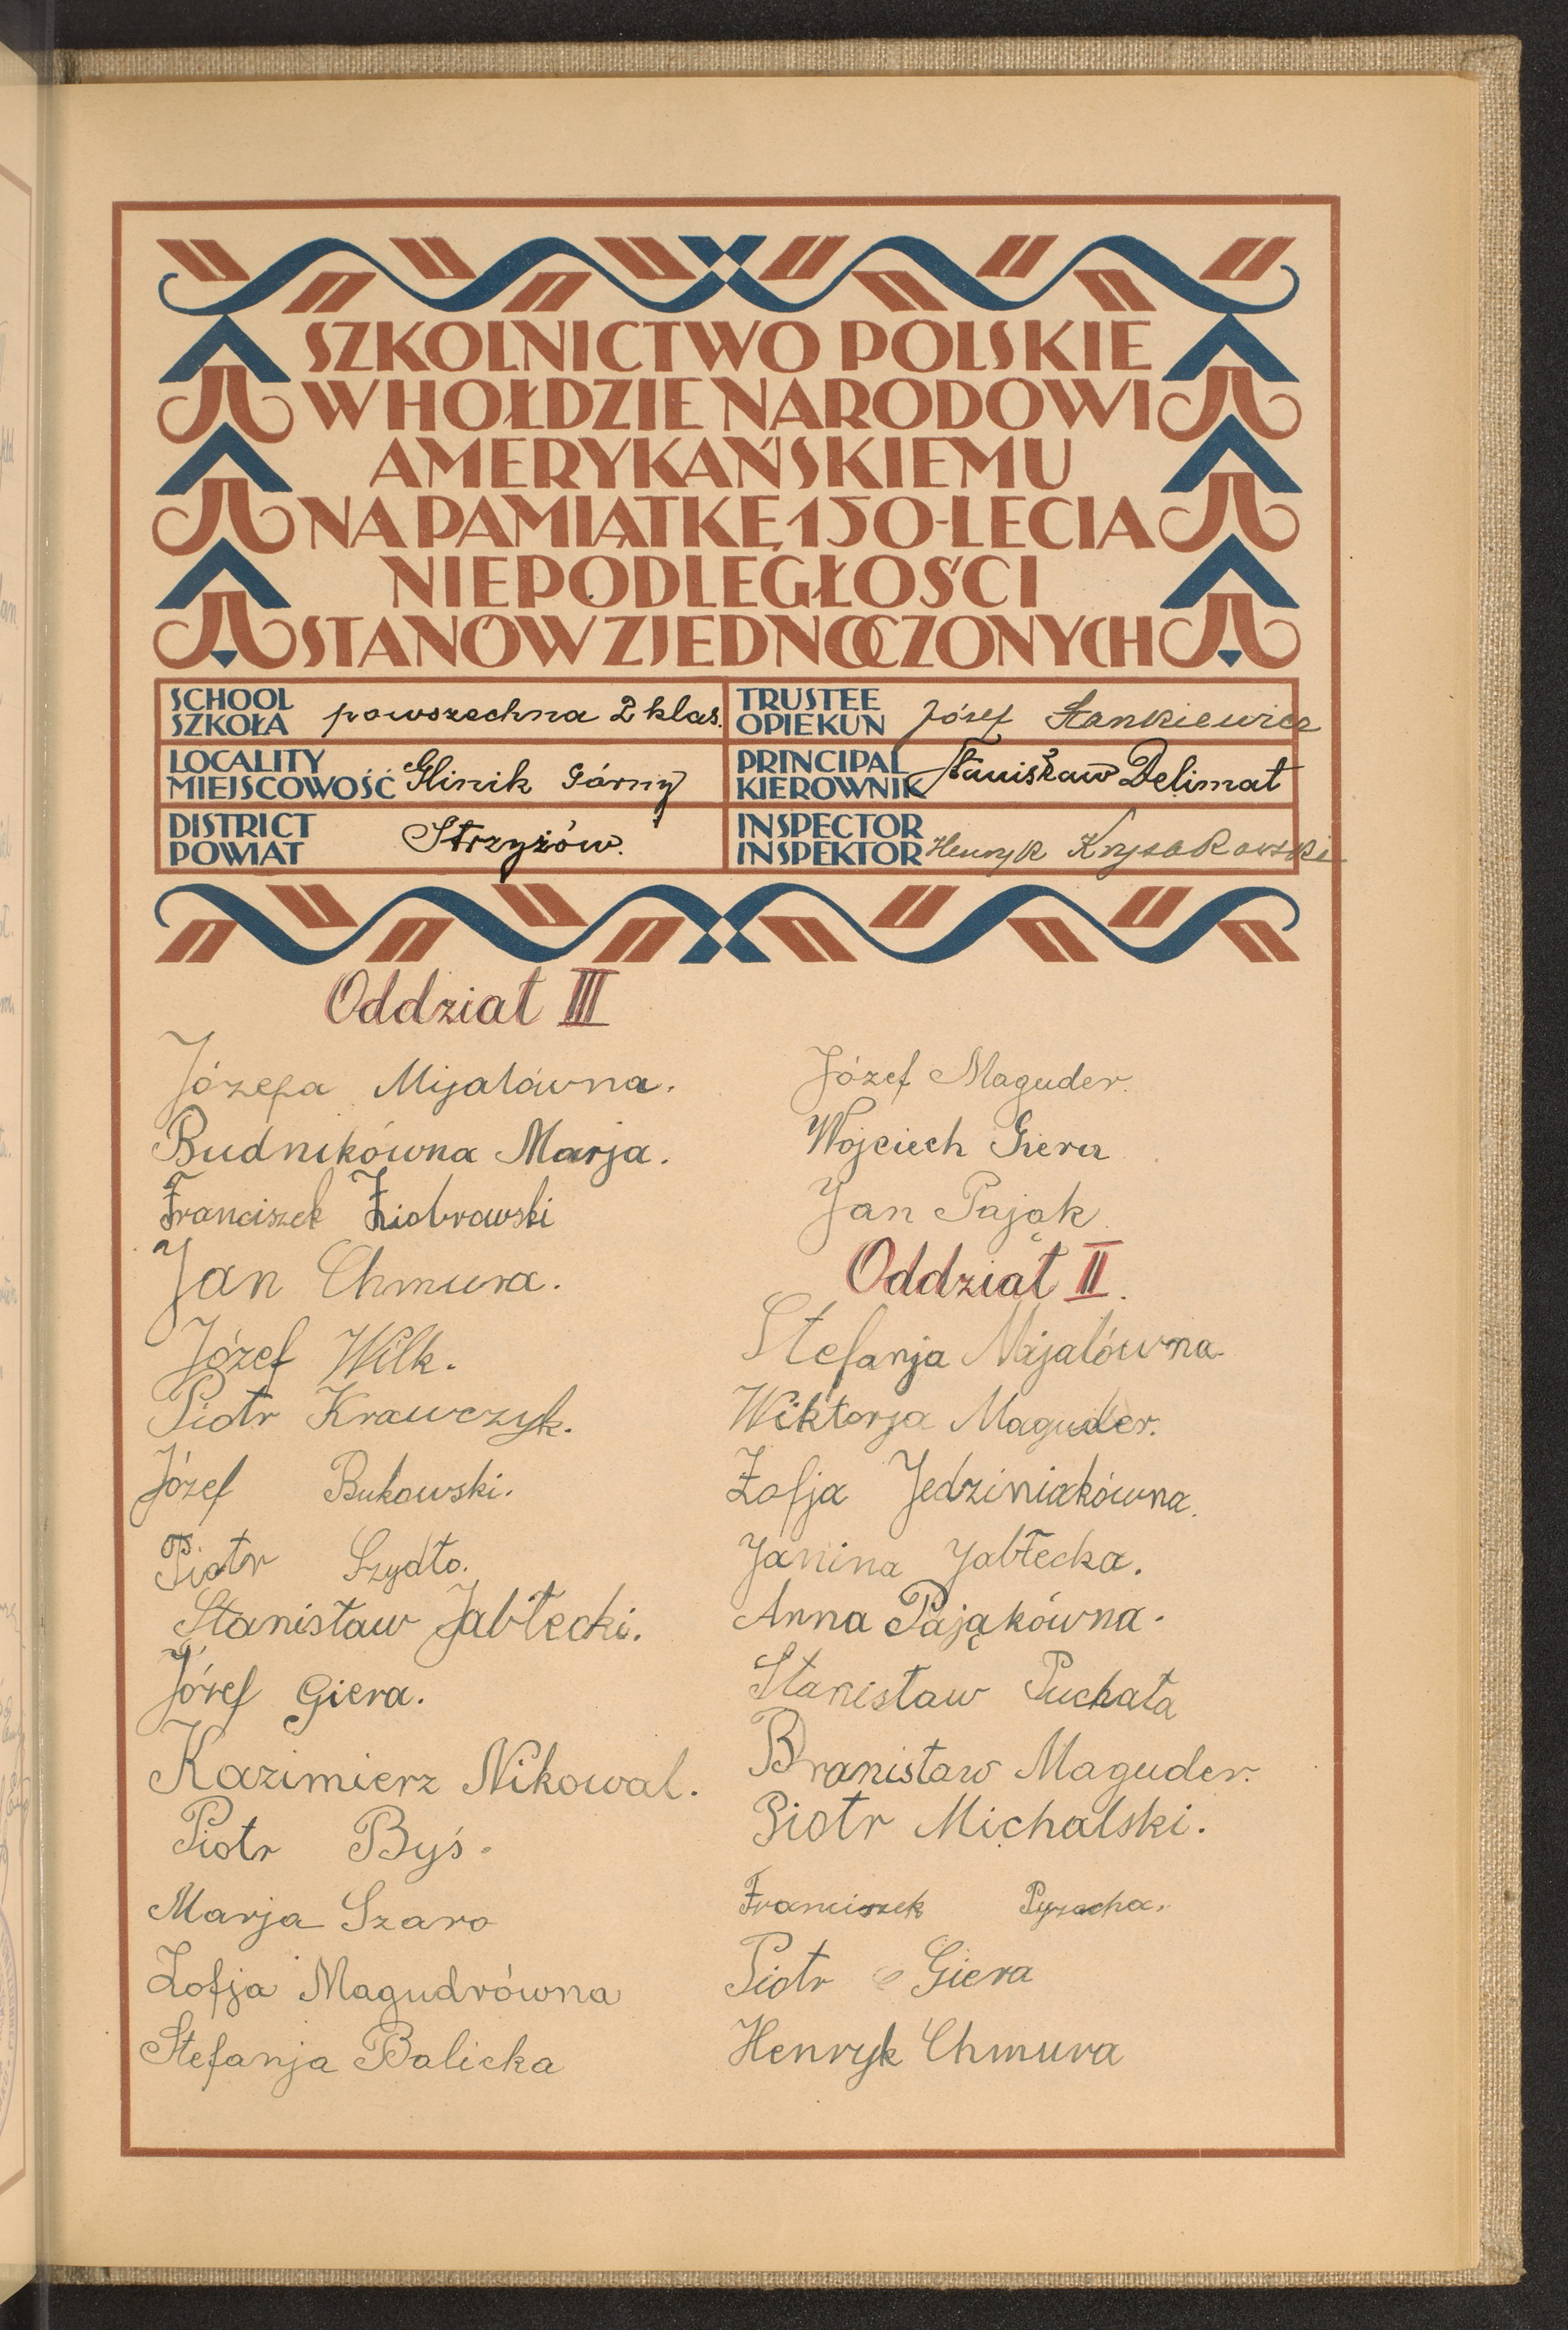 SZKOLNICTWO POLSKIE
W HOŁDZIE NARODOWI
AMERYKAŃSKIEMU
NA PAMIĄTKĘ 150-LECIA
NIEPODLEGŁOŚCI
STANÓW ZJEDNOCZONYCH
SCHOOL
SZKOŁA powszechna 2 klas.
LOCALITY
MIEJSCOWOŚĆ Glinik Górny
DISTRICT
POWIAT Strzyżów.
TRUSTEE
OPIEKUN Józef Stankiewicz
PRINCIPAL
KIEROWNIK Stanisław Delimat
INSPECTOR
INSPEKTOR Henryk
Oddział III
Józefa Mijalówna.
Budnikówna Marja.
Franciszek Ziobrowski
Jan Chmura.
Józef Wilk.
Piotr Krawczyk.
Józef Bukowski.
Piotr Szydło.
Stanisław Jabłecki.
Józef Giera.
Kazimierz Nikowal.
Piotr Byś.
Marja Szaro
Zofja Magudrówna
Stefanja Balicka
Józef Maguder.
Wojciech Giera
Jan Pająk
Oddział II.
Stefanja Mijalówna
Wiktorja Maguder.
Zofja Jedziniakówna.
Janina Jabłecka.
Anna Pająkówna.
Stanisław Puchała
Bronisław Maguder.
Piotr Michalski.
Franciszek
Piotr Giera
Henryk Chmura